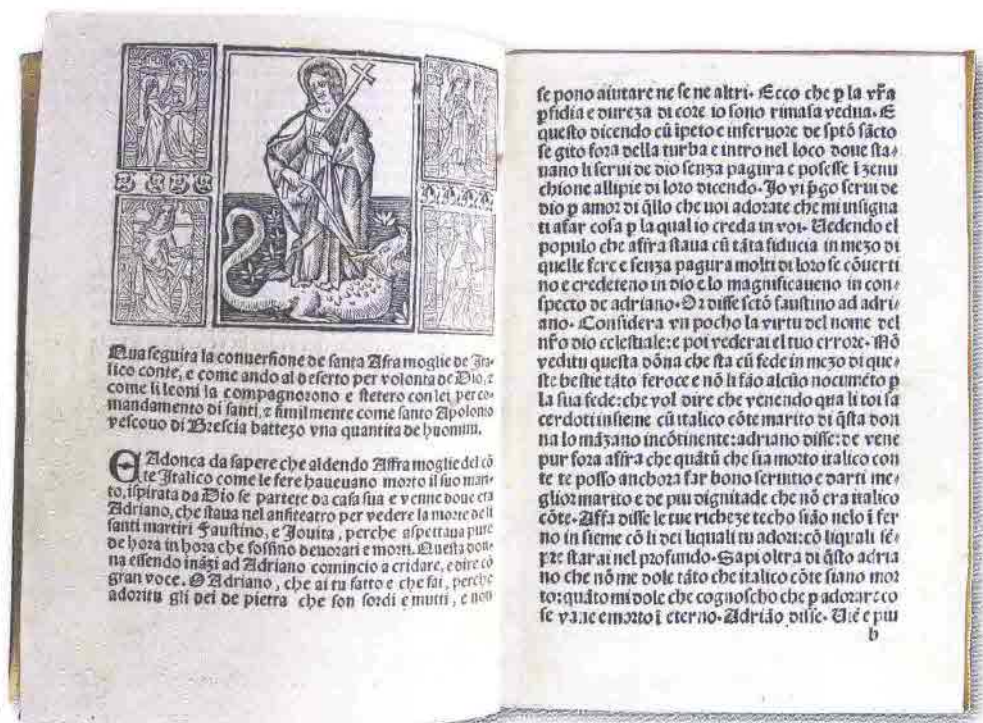 Qua seguita la conuersione de santa Afra moglie de Ita-
lico conte, e come ando al deserto per volonta de Dio, ⁊
come li leoni la compagnorono e stetero con lei per co-
mandamento di santi, ⁊ similmente come santo Apolonio
vescouo di Brescia battezo vna quantita de huomini.
E Adonca da sapere che aldendo Affra moglie del cō
te Italico come le fere haueuano morto il suo mari-
to, ispirata da Dio se parte da casa sua e venne doue era
Adriano, che staua nel anfiteatro per vedere la morte deli
santi martiri Faustino, e Jouita, perche aspettaua pure
de hora in hora che fossino deuorati e morti. Questa don-
na essendo ināzi ad Adriano comincio a cridare, e dire cō
gran voce. O Adriano, che ai tu fatto e che fai, perche
adoritu gli dei de pietra che son sordi e mutti, e non
se pono aiutare ne se ne altri. Ecco che ꝑ la vr̄a
ꝑfidia e dureza di core io sono rimasa vedua. E
questo dicendo cū īpeto e inferuore de sptō sācto
se gito fora della turba e intro nel loco doue sta-
uano li serui de dio senza pagura e posesse ī zenu
chione alli pie di loro dicendo. Io vi p̄go serui de
dio ꝑ amor di q̄llo che uoi adorate che mi insigna
ti afar cosa ꝑ la qual io creda in voi. Uedendo el
populo che affra staua cū tāta fiducia in mezo di
quelle fere e senza pagura molti di loro se cōuerti
no e credeteno in dio e lo magnificaueno in con-
specto de adriano. Or disse sctō faustino ad adri-
ano. Considera vn pocho la virtu del nome del
nr̄o dio celestiale: e poi vederai el tuo errore. Mō
veditu questa dōna che sta cū fede in mezo di que-
ste bestie tāto feroce e nō li fāo alcūo nocumēto ꝑ
la sua fede: che vol dire che venendo qua li toi sa
cerdoti insieme cū italico cōte marito di q̄sta don
na lo māzano incōtinente: adriano disse: de vene
pur fora affra che quātū che sia morto italico con
te te posso anchora far bono seruitio e darti me-
glior marito e de piu dignitade che nō era italico
cōte. Affa disse le tue richeze techo siāo nelo ī fer
no in sieme cō li dei liquali tu adori: cō liquali sē-
pre starai nel profundo. Sapi oltra di q̄sto adria
no che nō me dole tāto che italico cōte siano mor
to: quāto mi dole che cognoscho che ꝑ adorare co
se vane e morto ī eterno. Adriāo disse. Uiē e piu
b